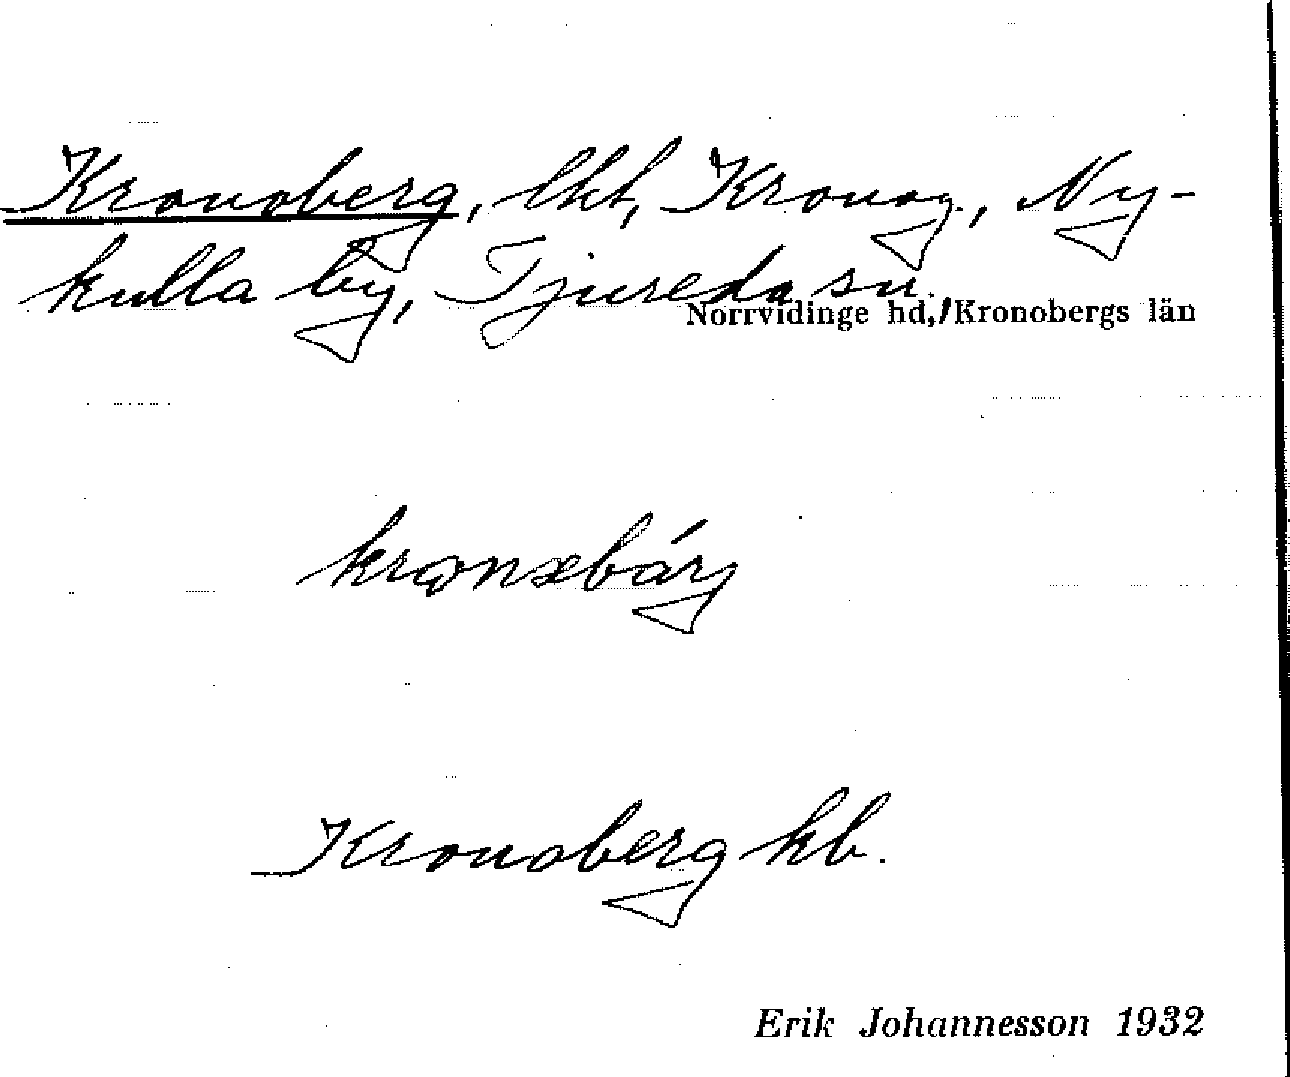 Kronoberg, lht, Kronog., Ny-
kulla by, Tjureda sn.
Norrvidinge hd, Kronobergs län
krɷnɶbárg
Kronoberg kb.
Erik Johannesson 1932